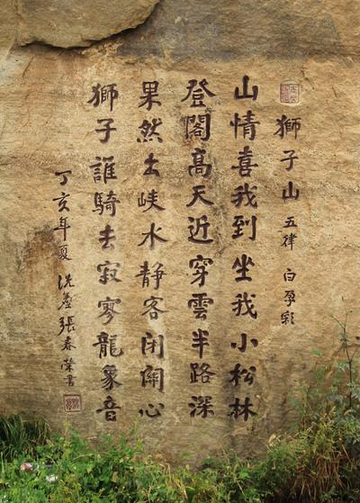 獅子山 五律 白孕彩
山情喜我到坐我小松林
登閣高天近穿雲半路深
果然出峡水静客闭関心
獅子誰騎去寂寥龍象音
丁亥年夏 張春榮書